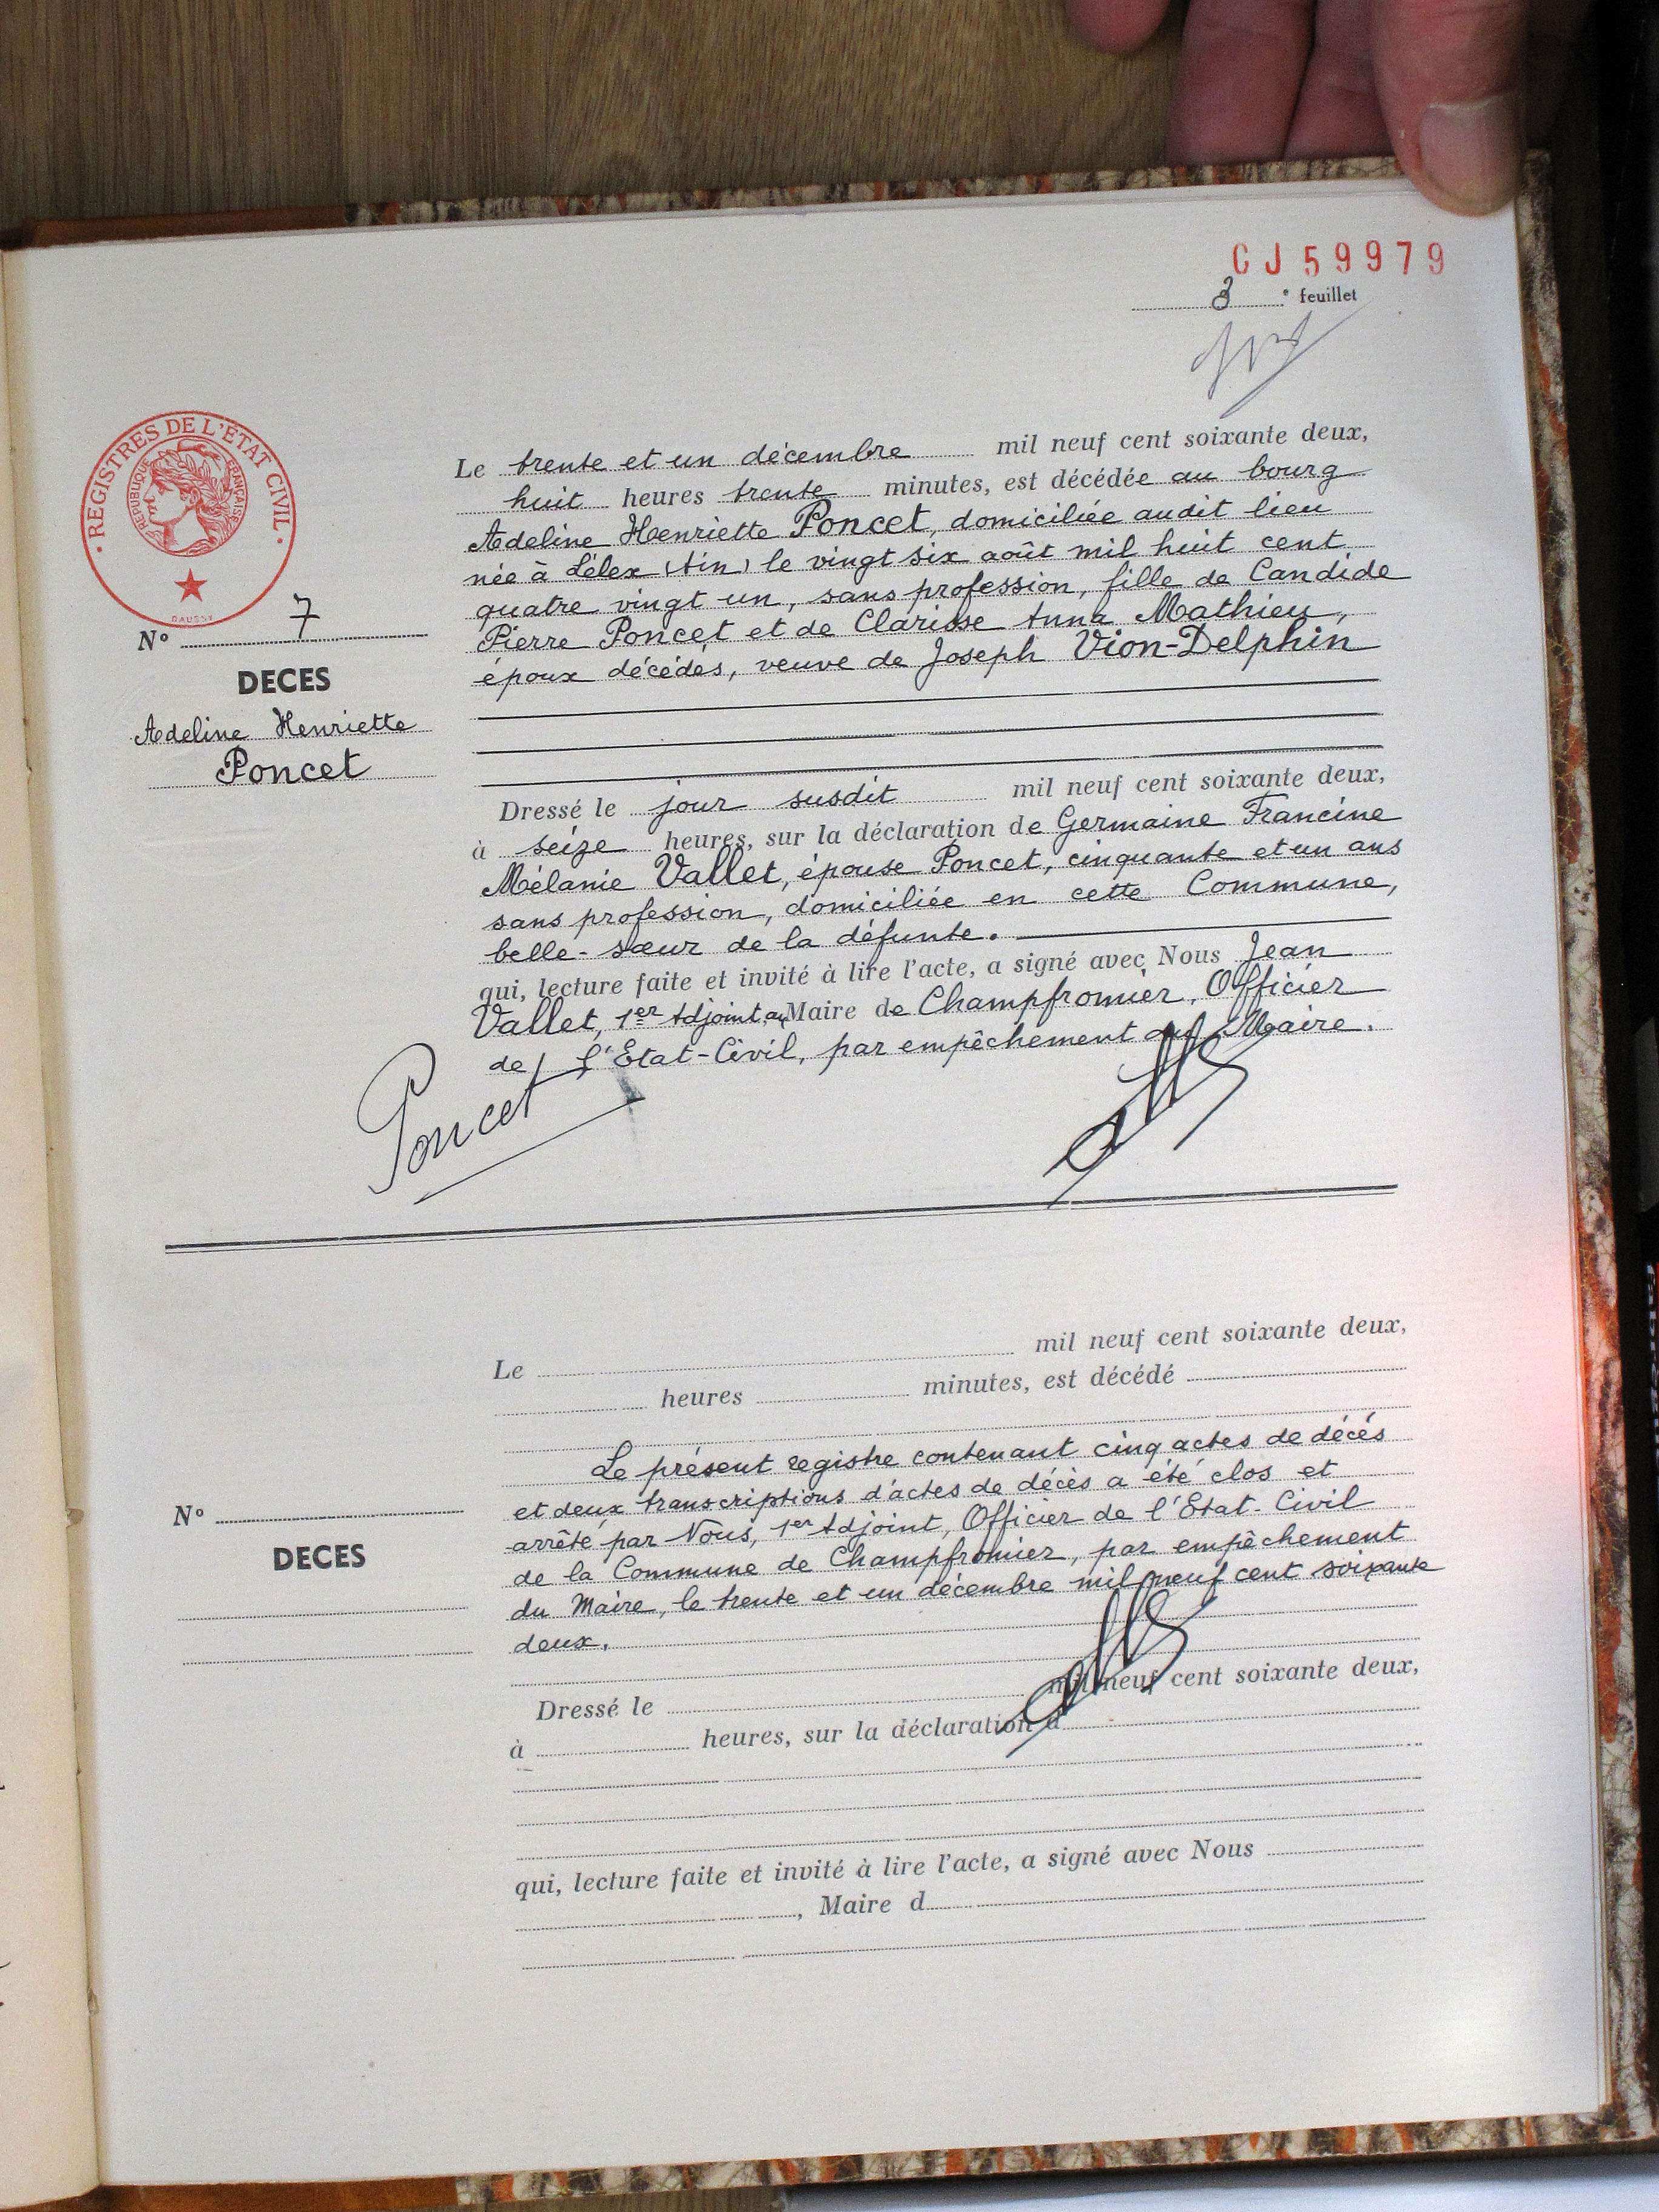 CJ59979
3e feuillet
REGISTRES DE L'ETAT CIVIL
REPUBLIQUE FRANÇAISE
DAUSSY
N° 7
DECES
Adeline Henriette
Poncet
Le trente et un décembre mil neuf cent soixante deux,
huit heures trente minutes, est décédée au bourg
Adeline Henriette Poncet, domiciliée audit lieu
née à Lélex (Ain) le vingt six août mil huit cent
quatre vingt un, sans profession, fille de Candide
Pierre Poncet et de Clarisse Anna Mathieu,
époux décédés, veuve de Joseph Vion-Delphin
Dressé le jour susdit mil neuf cent soixante deux,
à seize heures, sur la déclaration de Germaine Francine
Mélanie Vallet, épouse Poncet, cinquante et un ans
sans profession, domiciliée en cette Commune,
belle-sœur de la défunte.
qui, lecture faite et invité à lire l'acte, a signé avec Nous Jean
Vallet, 1er Adjoint au Maire de Champfromier, Officier
de l'Etat-Civil, par empêchement du Maire.
Poncet
Le mil neuf cent soixante deux,
heures minutes, est décédé
Le présent registre contenant cinq actes de décés
et deux transcriptions d'actes de décès a été clos et
arrêté par Nous, 1er Adjoint, Officier de l'Etat-Civil
de la Commune de Champfromier, par empêchement
du Maire, le trente et un décembre mil neuf cent soixante
deux.
N°
DECES
Dressé le mil neuf cent soixante deux,
à heures, sur la déclaration d
qui, lecture faite et invité à lire l'acte, a signé avec Nous
, Maire d